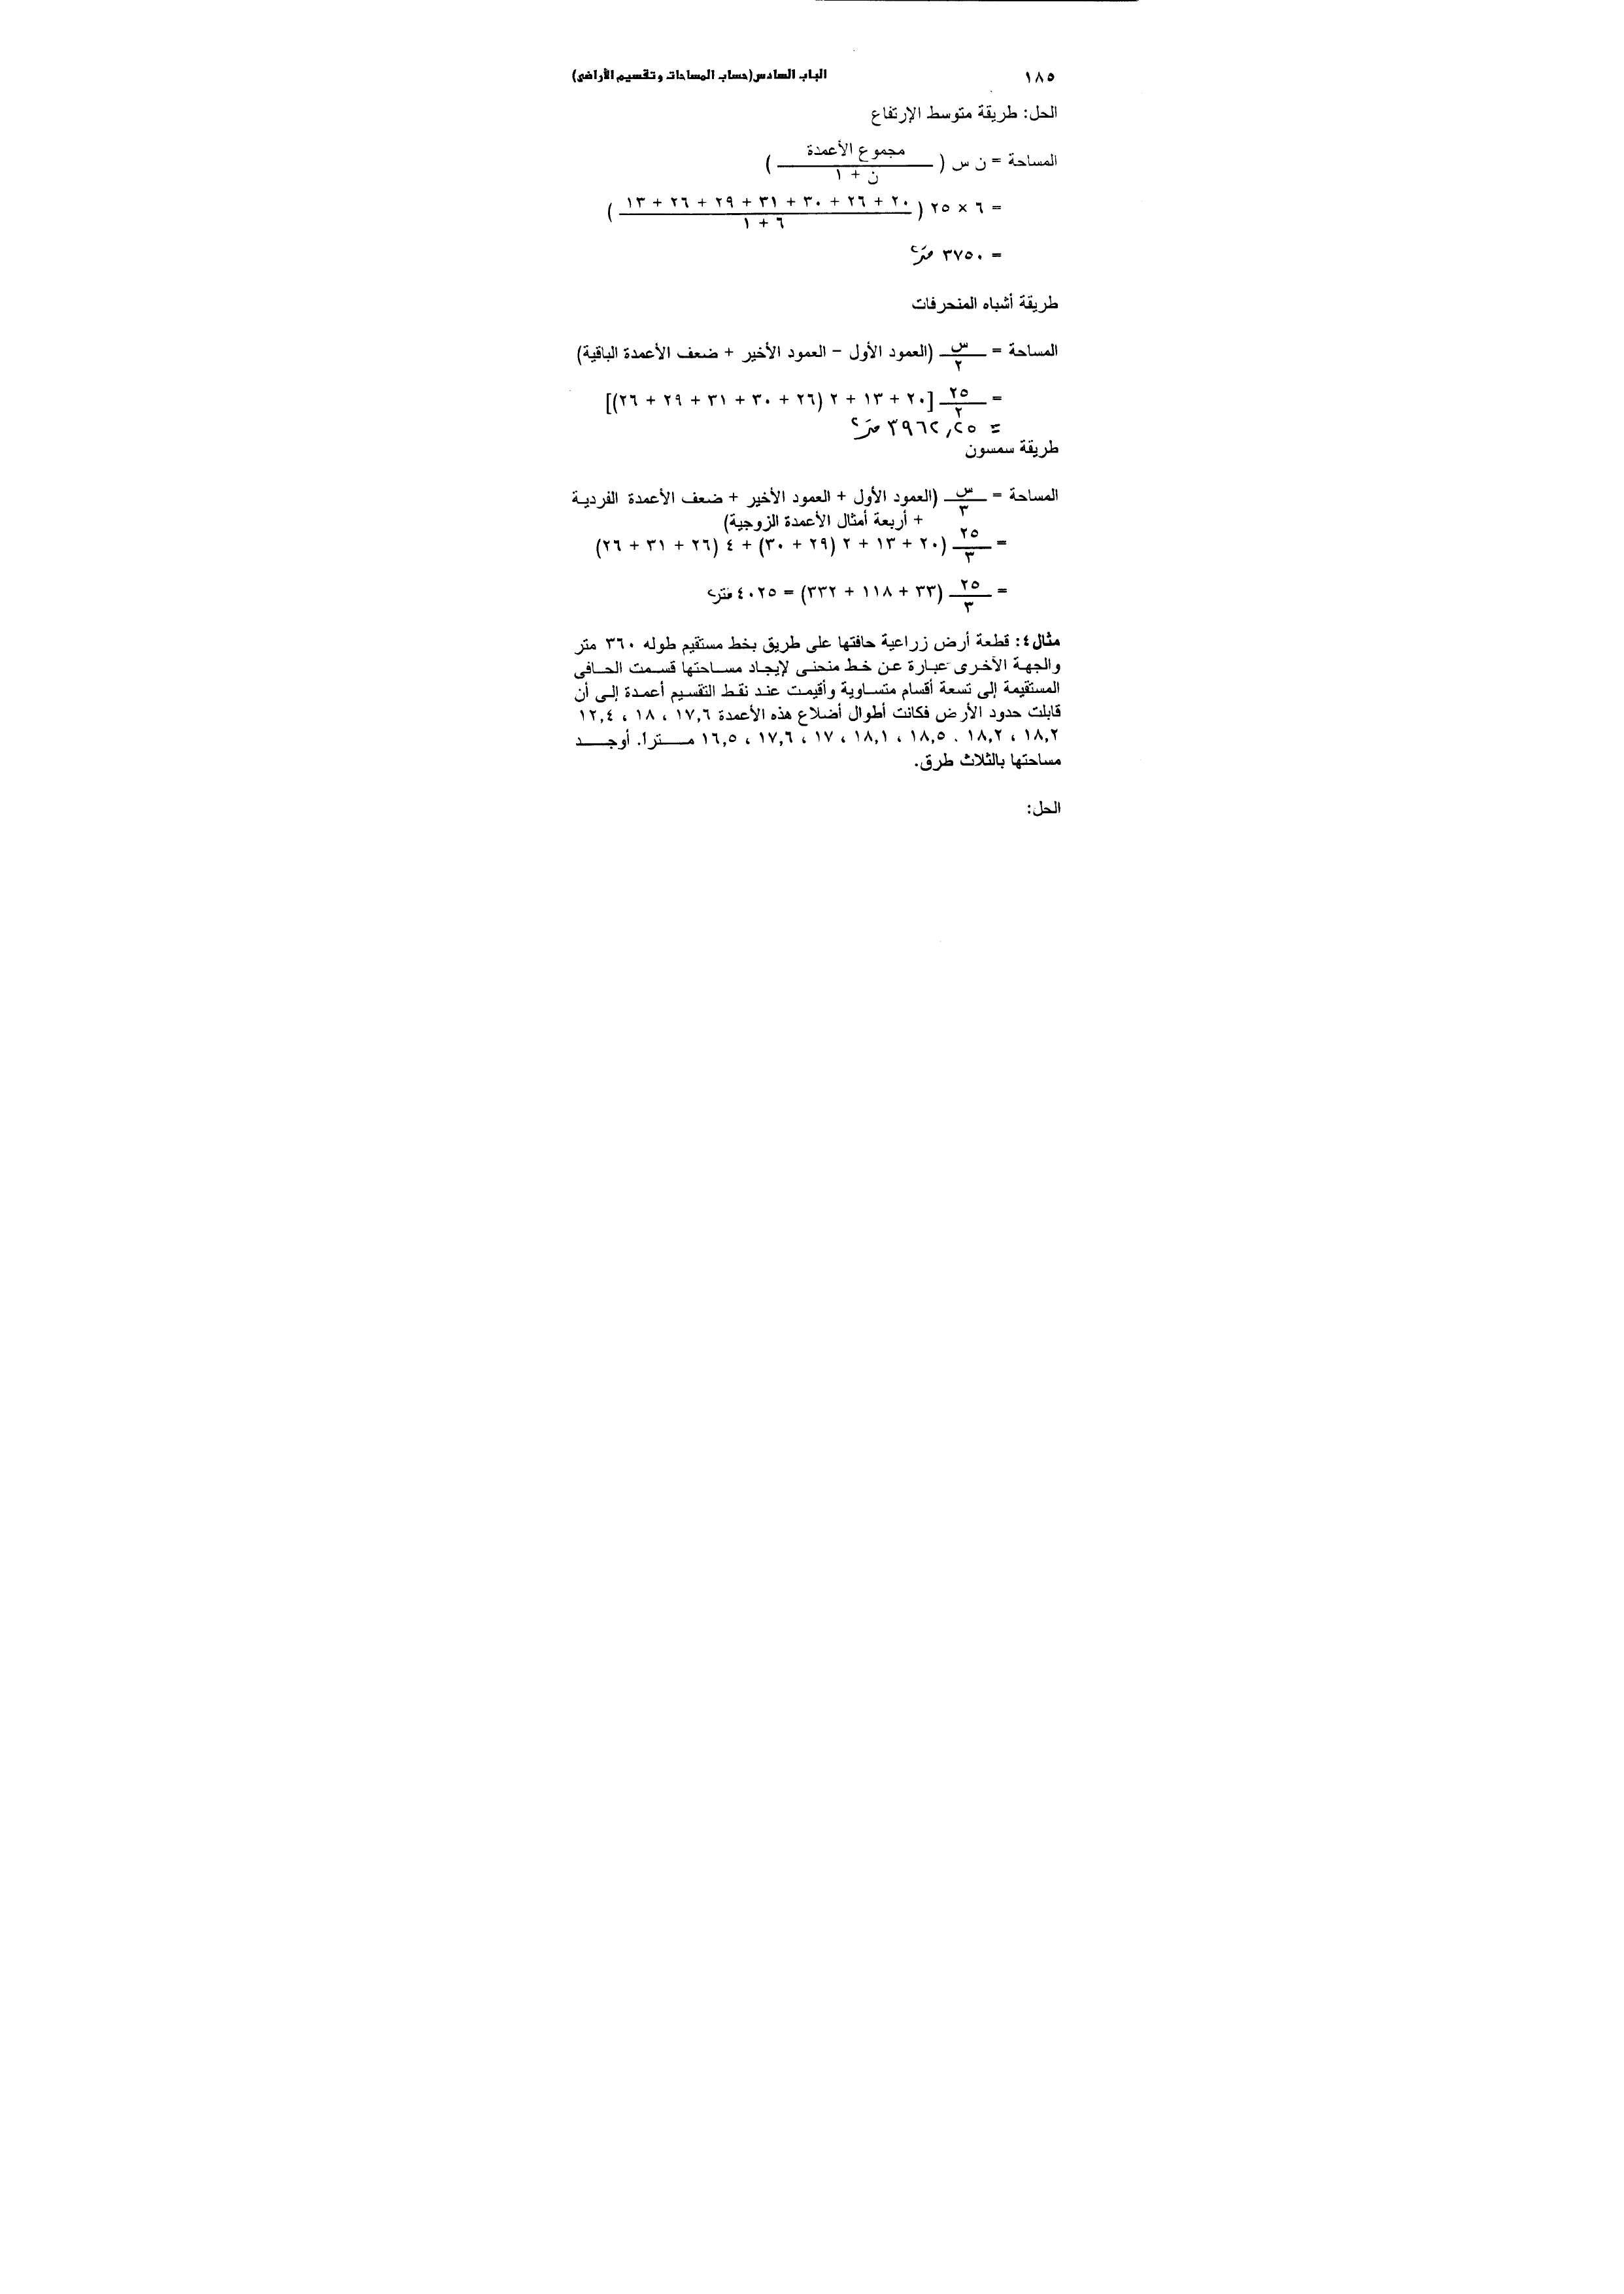 ١٨٥ الباب السادس(حساب المساحات وتقسيم الأراضى)
الحل: طريقة متوسط الإرتفاع
المساحة = ن س ( مجموع الأعمدة / ن + ١ )
= ٦ × ٢٥ ( ٢٠ + ٢٦ + ٣٠ + ٣١ + ٢٩ + ٢٦ + ١٣ / ٦ + ١ )
= ٣٧٥٠ متر٢
طريقة أشباه المنحرفات
المساحة = س / ٢ (العمود الأول – العمود الأخير + ضعف الأعمدة الباقية)
= ٢٥ / ٢ [٢٠ + ١٣ + ٢ (٢٦ + ٣٠ + ٣١ + ٢٩ + ٢٦)]
= ٣٩٦٢,٢٥ متر٢
طريقة سمسون
المساحة = س / ٣ (العمود الأول + العمود الأخير + ضعف الأعمدة الفردية
+ أربعة أمثال الأعمدة الزوجية)
= ٢٥ / ٣ (٢٠ + ١٣ + ٢ (٢٩ + ٣٠) + ٤ (٢٦ + ٣١ + ٢٦)
= ٢٥ / ٣ (٣٣ + ١١٨ + ٣٣٢) = ٤٠٢٥ متر٢
مثال٤: قطعة أرض زراعية حافتها على طريق بخط مستقيم طوله ٣٦٠ متر
والجهة الآخرى عبارة عن خط منحنى لإيجاد مساحتها قسمت الحافى
المستقيمة إلى تسعة أقسام متساوية وأقيمت عند نقط التقسيم أعمدة إلى أن
قابلت حدود الأرض فكانت أطوال أضلاع هذه الأعمدة ١٧,٦ ، ١٨ ، ١٢,٤
١٨,٢ ، ١٨,٢ . ١٨,٥ ، ١٨,١ ، ١٧ ، ١٧,٦ ، ١٦,٥ مترا. أوجد
مساحتها بالثلاث طرق.
الحل: